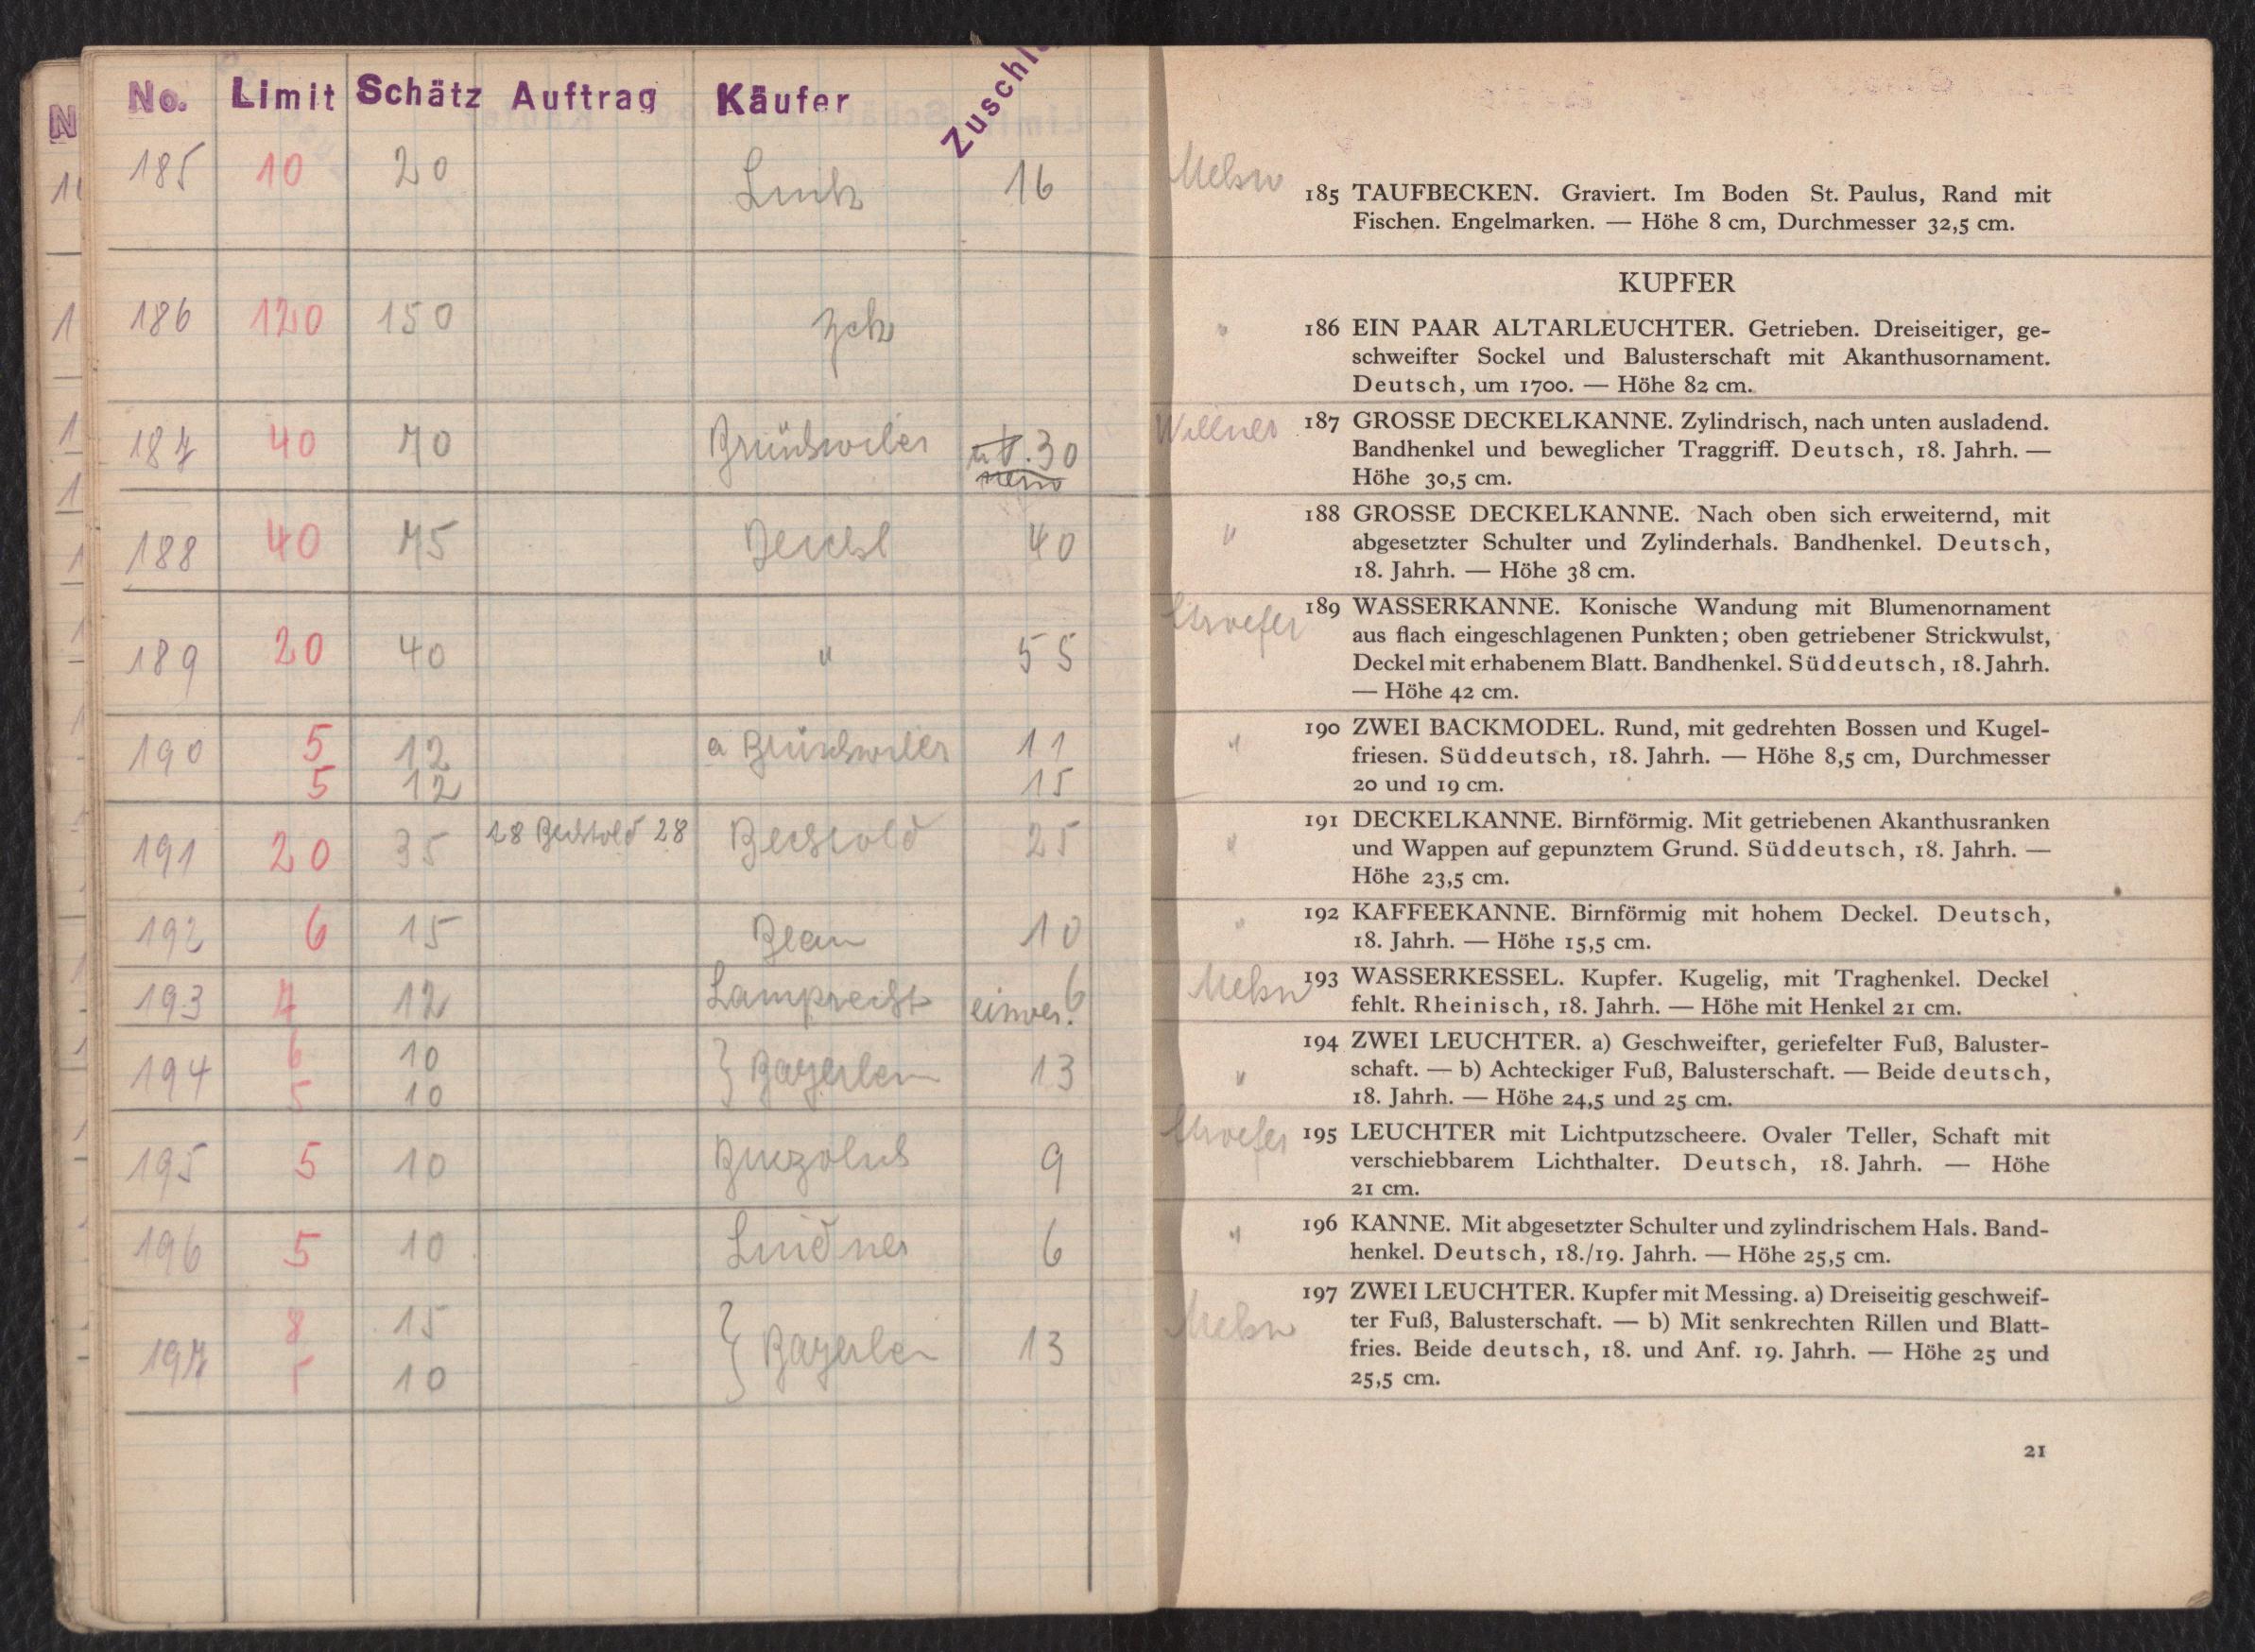 No. Limit Schätz Auftrag Käufer
185 10 20 Link 16
186 120 150 zck
187 40 70 Brünsweiler 30
188 40 75 40
189 20 40 " 55
190 5 12 a 11
5 12 15
191 20 35 28 Bechtold 28 Bechtold 25
192 6 15 10
193 7 12 Lamprecht 6
194 6 10 } Bayerlein 13
5 10
195 5 10 9
196 5 10 Lindner 6
197 8 15 } Bayerlein 13
5 10
185 TAUFBECKEN. Graviert. Im Boden St. Paulus, Rand mit
Fischen. Engelmarken. — Höhe 8 cm, Durchmesser 32,5 cm.
KUPFER
" 186 EIN PAAR ALTARLEUCHTER. Getrieben. Dreiseitiger, ge-
schweifter Sockel und Balusterschaft mit Akanthusornament.
Deutsch, um 1700. — Höhe 82 cm.
Willner 187 GROSSE DECKELKANNE. Zylindrisch, nach unten ausladend.
Bandhenkel und beweglicher Traggriff. Deutsch, 18. Jahrh. —
Höhe 30,5 cm.
" 188 GROSSE DECKELKANNE. Nach oben sich erweiternd, mit
abgesetzter Schulter und Zylinderhals. Bandhenkel. Deutsch,
18. Jahrh. — Höhe 38 cm.
Stroefer 189 WASSERKANNE. Konische Wandung mit Blumenornament
aus flach eingeschlagenen Punkten; oben getriebener Strickwulst,
Deckel mit erhabenem Blatt. Bandhenkel. Süddeutsch, 18. Jahrh.
— Höhe 42 cm.
" 190 ZWEI BACKMODEL. Rund, mit gedrehten Bossen und Kugel-
friesen. Süddeutsch, 18. Jahrh. — Höhe 8,5 cm, Durchmesser
20 und 19 cm.
" 191 DECKELKANNE. Birnförmig. Mit getriebenen Akanthusranken
und Wappen auf gepunztem Grund. Süddeutsch, 18. Jahrh. —
Höhe 23,5 cm.
" 192 KAFFEEKANNE. Birnförmig mit hohem Deckel. Deutsch,
18. Jahrh. — Höhe 15,5 cm.
193 WASSERKESSEL. Kupfer. Kugelig, mit Traghenkel. Deckel
fehlt. Rheinisch, 18. Jahrh. — Höhe mit Henkel 21 cm.
194 ZWEI LEUCHTER. a) Geschweifter, geriefelter Fuß, Baluster-
" schaft. — b) Achteckiger Fuß, Balusterschaft. — Beide deutsch,
18. Jahrh. — Höhe 24,5 und 25 cm.
Stroefer 195 LEUCHTER mit Lichtputzscheere. Ovaler Teller, Schaft mit
verschiebbarem Lichthalter. Deutsch, 18. Jahrh. — Höhe
21 cm.
" 196 KANNE. Mit abgesetzter Schulter und zylindrischem Hals. Band-
henkel. Deutsch, 18./19. Jahrh. — Höhe 25,5 cm.
197 ZWEI LEUCHTER. Kupfer mit Messing. a) Dreiseitig geschweif-
ter Fuß, Balusterschaft. — b) Mit senkrechten Rillen und Blatt-
fries. Beide deutsch, 18. und Anf. 19. Jahrh. — Höhe 25 und
25,5 cm.
21